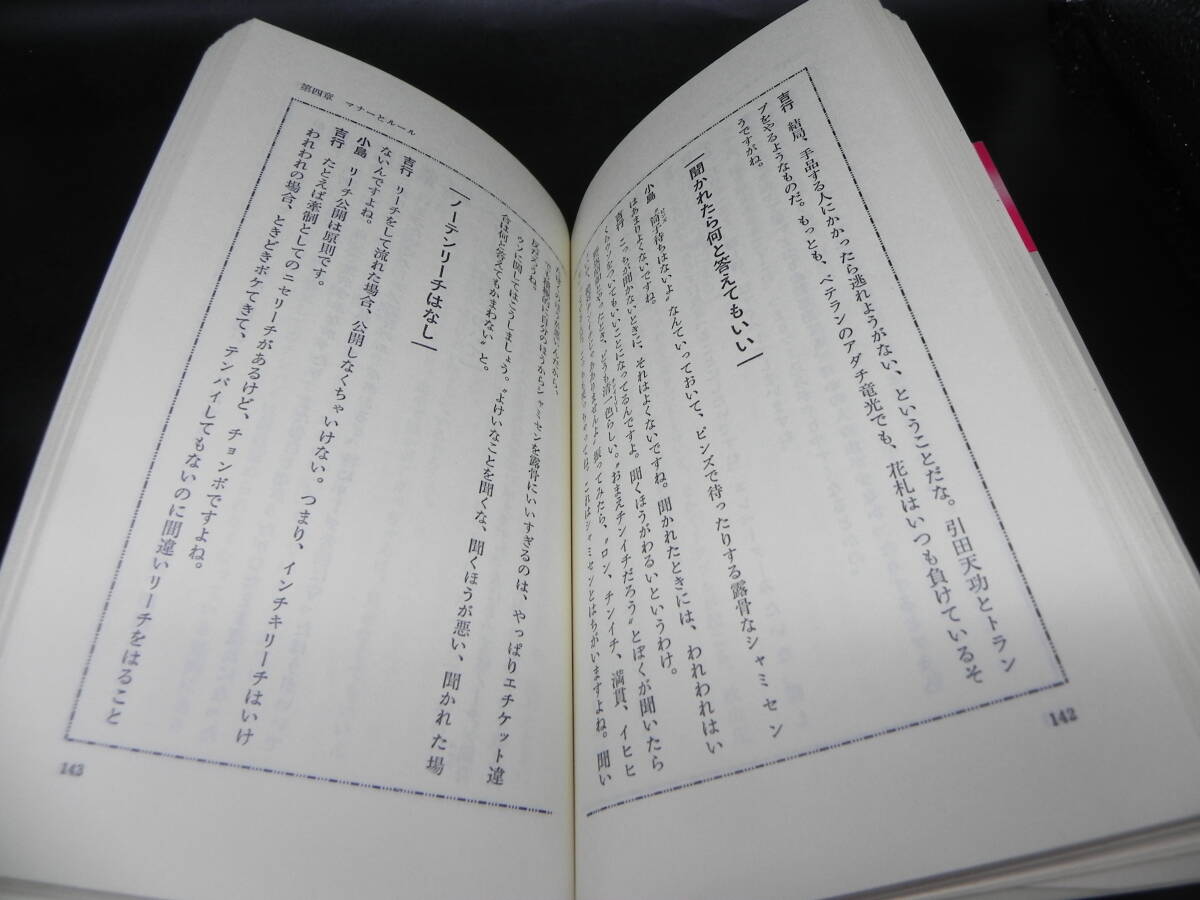 吉行　結局、手品する人にかかったら逃れようがない、ということだな。引田天功とトラン
プをやるようなものだ。もっとも、ベテランのアダチ竜光でも、花札はいつも負けているそ
うですがね。
聞かれたら何と答えてもいい
小島　“筒子待ちはないよ”なんていっておいて、ピンズで待ったりする露骨なシャミセン
はあまりよくないですね。
吉行　こっちが聞かないときに、それはよくないですね。聞かれたときには、われわれはい
くらウソをついてもいいことになってるんですよ。聞くほうがわるいというわけ。
どうも清一色らしい。“おまえチンイチだろう”とぼくが聞いたら
張ってみたら、“ロン、チンイチ、満貫、イヒヒ
これはシャミセンとはちがいますよね。聞い
142
第四章　マナーとルール
自分のほうからシャミセンを露骨にいいすぎるのは、やっぱりエチケット違
反だろうね。
ウソに関してはこうしましょう。“よけいなことを聞くな、聞くほうが悪い、聞かれた場
合は何と答えてもかまわない”と。
ノーテンリーチはなし
吉行　リーチをして流れた場合、公開しなくちゃいけない。つまり、インチキリーチはいけ
ないんですよね。
小島　リーチ公開は原則です。
吉行　たとえば牽制としてのニセリーチがあるけど、チョンボですよね。
われわれの場合、ときどきボケてきて、テンパイしてもないのに間違いリーチをはること
143